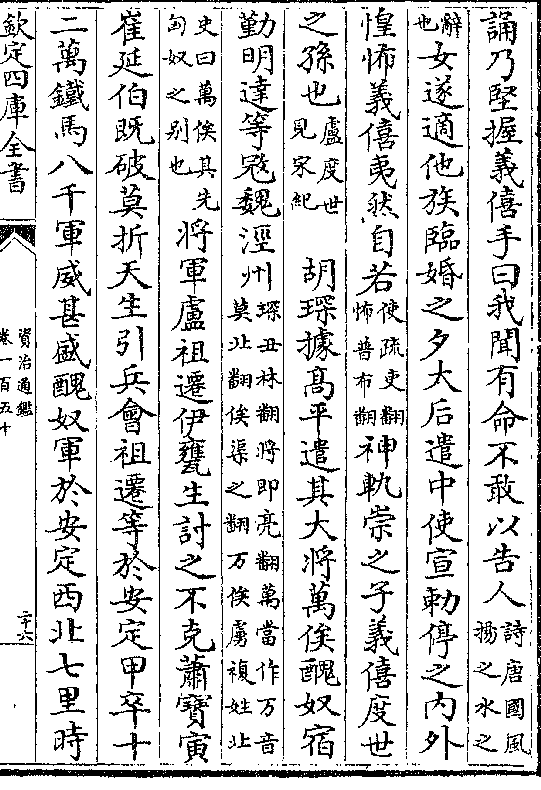 誦乃堅握義僖手曰我聞有命不敢以告人詩唐國風揚之水之
辭也女遂適他族臨婚之夕大后遣中使宣勅停之内外
惶怖義僖夷然自若使疏吏翻怖普布翻神軌崇之子義僖度世
之孫也盧度世見宋紀胡琛據髙平遣其大將萬俟醜奴宿
勤明達等冦魏涇州琛丑林翻將即亮翻萬當作万音莫北翻俟渠之翻万俟虜複姓北
史曰萬俟其先匈奴之别也將軍盧祖遷伊甕生討之不克蕭寶寅
崔延伯既破莫折天生引兵會祖遷等於安定甲卒十
二萬鐵馬八千軍威甚盛醜奴軍於安定西北七里時
欽定四庫全書
資治通鑑
卷一百五十
二十六